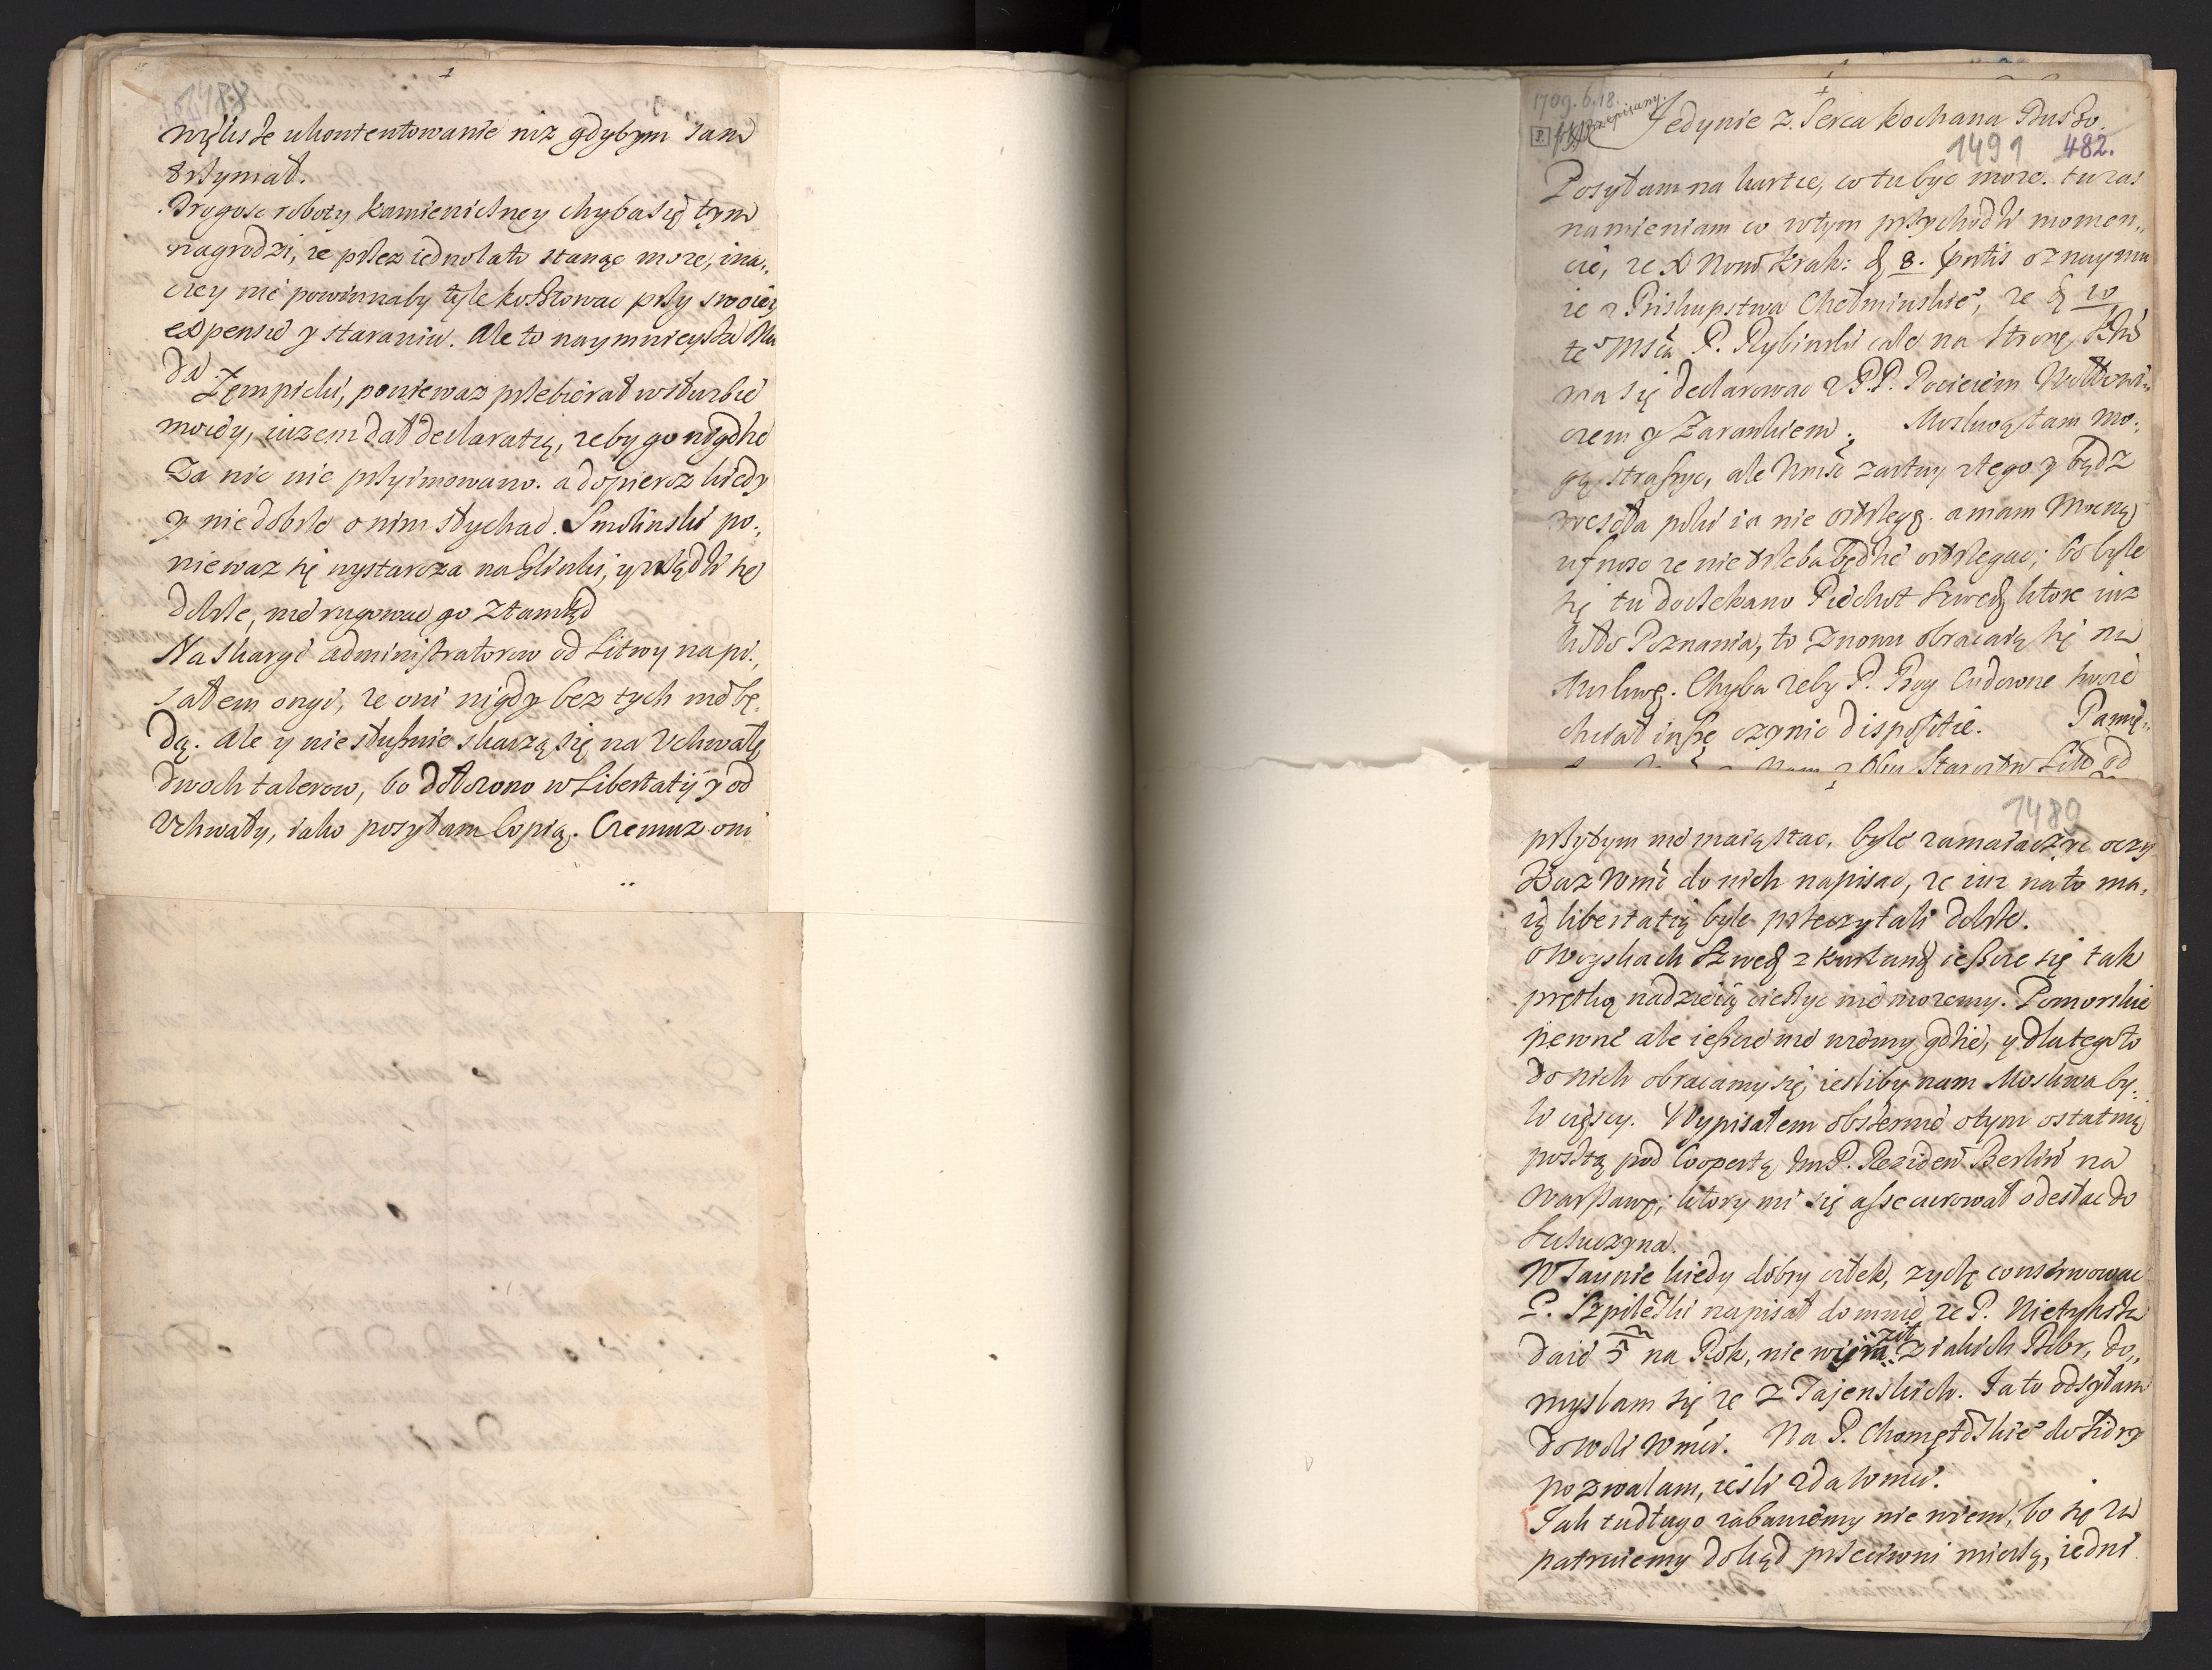 1488
większe ukontentowanie niz gdybym sam
trzymał.
Drogosc roboty kamieniczney chyba się tym
nagrodzi, ze przez iedno lato stanąc moze, ina„
czey nie powinnaby tyle kosztowac przy swoiey
expensie y staraniu. Ale to naymnieysza
da.
Zempicki, poniewaz przebierał w sturbie
moiey, iuzem dał declaratią, zeby go nigdzie
Za nic nie przyimowano. a dopieroz kiedy
y nie dobrze o nim słychac. Smolinski po„
niewaz się wystarcza na Glinki, y rządzi się
dobrze, nie rugowac go ztamtąd
Na skargi administratorow od Litwy napi„
sałem onyi, ze oni nigdy bez tych nie bę„
dą. Ale y niesłusznie skarzą się na Uchwałę
dwoch talerow, bo dołozono w Libertatij y od
Uchwały, iako posyłam Copią. Czemuz oni
1709. 6. 18.
przepisany.
Jedynie z Serca kochana Duszko.
1491 482.
Posyłam na kartce, co tu byc moze. tu zas
namieniam co w tym przychodzi momen„
cie, ze X Nom Krak: d. 8. pntis oznaymu
ie z Biskupstwa Chełminskie°, ze d. 10
te° Msca P. Rybinski cale na stronę
ma się declarowac z P.P. Pocieiem Wołłowi„
czem y Zarankiem. Moskwą tam mo„
gą straszyc, ale Wmsc zartuy z tego y bądz
wesoła poki ia nie ostrzegę. a mam mocną
ufnosc ze nie trzeba będzie ostrzegac; bo byle
się tu doczekano Piechot Szweds, ktore iuz
blisko Poznania, to znowu obracaią się na
Moskwę. Chyba zeby P. Bog cudowne swoie
chciał insze czynic dispositie. Pamię„
1489
przytym nie maią stac, byle zamataczyc oczy
Kaz Wmsc do nich napisac, ze iuz na to ma„
ią libertatią byle przeczytali dobrze.
O Woyskach Szweds z Kurland ieszcze się tak
prętką nadzieią cieszyc nie mozemy. Pomorskie
pewne ale ieszcze nie wiemy gdzie, y dlatego to
do nich obracamy się, iesliby nam Moskwa by„
li cięscy. Wypisałem obszernie o tym ostatnią
posztą pod Coopertą JmP. Reziden Berlin na
Warszawę; ktory mi się assecurował odesłac do
Szczuczyna.
W Taynie kiedy dobry człek, zyczę conserwowac
P. Szpilewski napisał do mnie, ze P. Nietyksza
daie 5 na Rok, nie wyra ził z iakich Dobr, do„
myslam się ze z Tajenskich. Ja to odsyłam
do woli Wmsci. Na P. Chomętowskie° do Sidry
pozwalam, iesli zda Wmsci.
Jak tu długo zabawiemy nie wiem, bo się za
patruiemy dokąd przeciwni mierzą, iedni